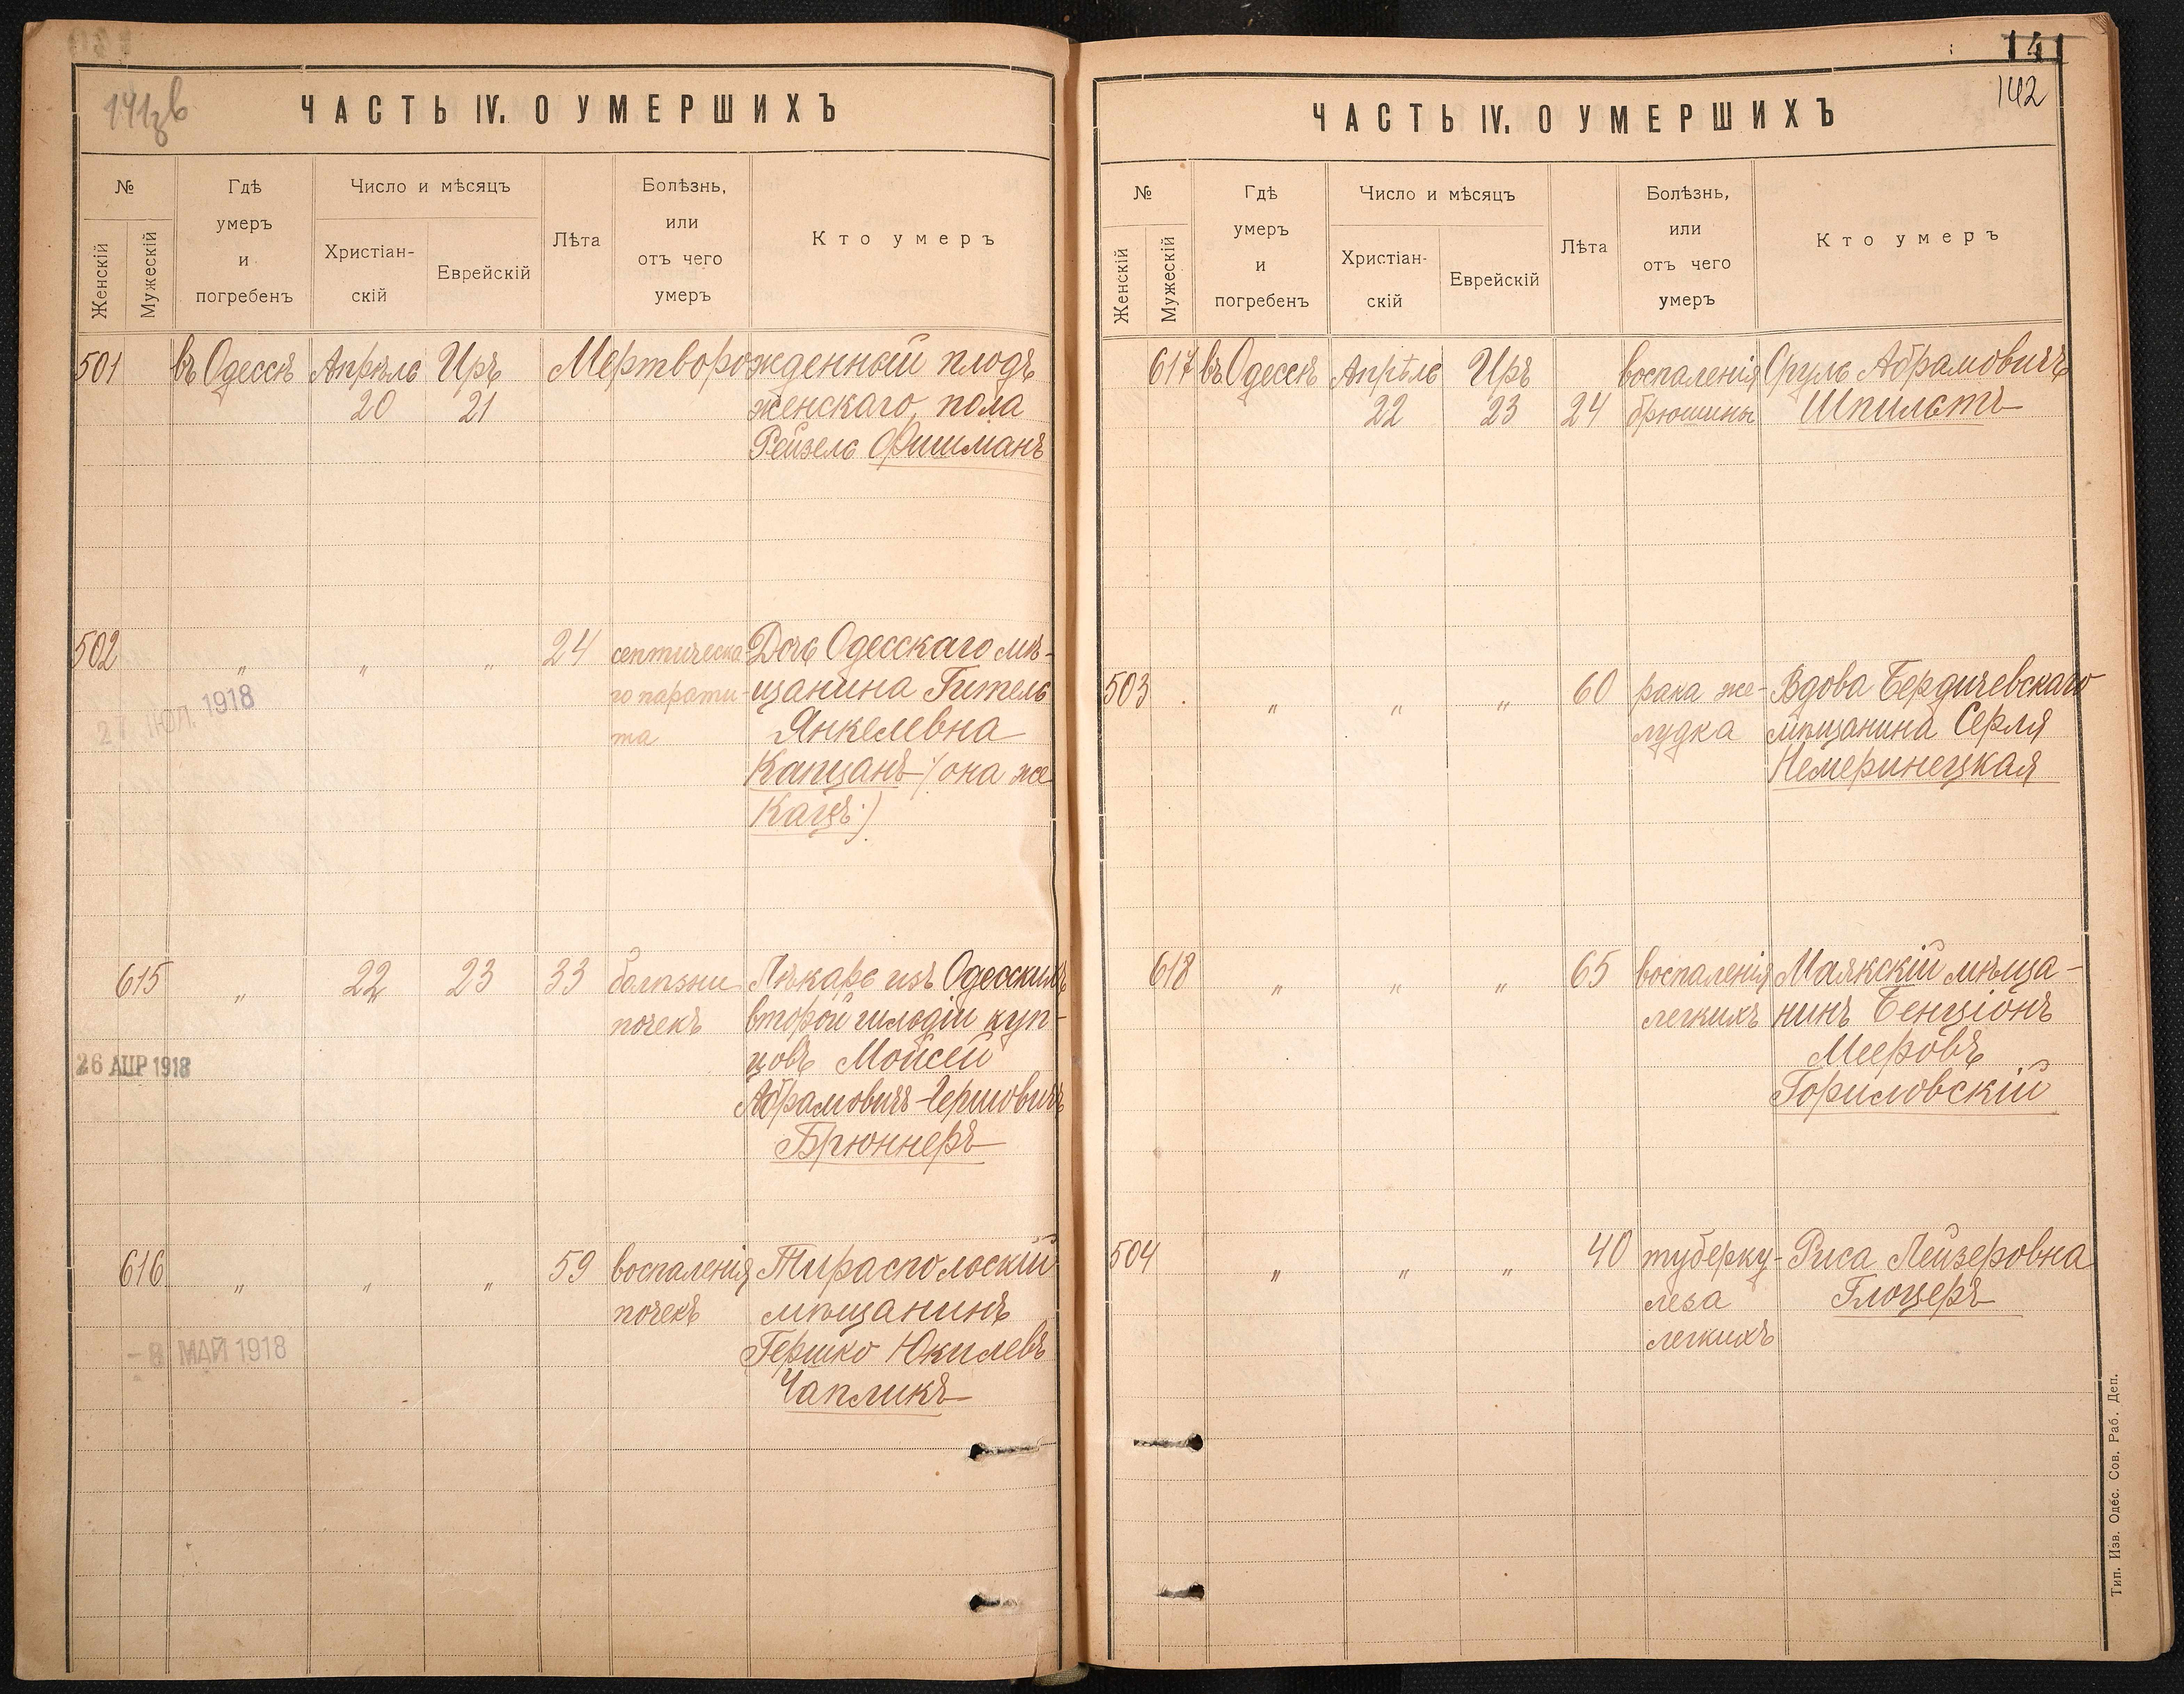 ЧАСТЬ IV. О УМЕРШИХЪ
№
Женскій
Мужескій
Гдѣ
умеръ
и
погребенъ
Число и мѣсяцъ
Христіан-
скій
Еврейскій
Лѣта
Болѣзнь,
или
отъ чего
умеръ
Кто умеръ
501 въ Одессѣ Апрѣль Иръ Мертворожденный плодъ
20 21 женскаго пола
Рейзель Фишманъ
502 " " " 24 септическа- Дочь Одесскаго мѣ-
го парати- щанина Гитель
та Янкелевна
Капцанъ /: она же
Кацъ :/
ИЮЛ. 1918
615 " 22 23 33 болѣзни Лѣкарь изъ Одесскихъ
почекъ второй гильдіи куп-
цовъ Мойсей
Абрамовичъ-Гершовичъ
Брюннеръ
26 АПР 1918
616 " " " 59 воспаленія Тираспольскій
почекъ мѣщанинъ
Гершко Юкилевъ
Чапликъ
- 8 МАЙ 1918
141
142
ЧАСТЬ IV. О УМЕРШИХЪ
№
Женскій
Мужескій
Гдѣ
умеръ
и
погребенъ
Число и мѣсяцъ
Христіан-
скій
Еврейскій
Лѣта
Болѣзнь,
или
отъ чего
умеръ
Кто умеръ
617 въ Одессѣ Апрѣль Иръ воспаленія Сруль Абрамовичъ
22 23 24 брюшины Шпильтъ
503 " " " 60 рака же- Вдова Бердичевскаго
лудка мѣщанина Серля
Немеринецкая
618 " " " 65 воспаленія Маякскій мѣща-
легкихъ нинъ Бенціонъ
Мееровъ
Гориловскій
504 " " " 40 туберку- Риса Лейзеровна
леза Глоцеръ
легкихъ
Тип. Изв. Одес. Сов. Раб. Деп.